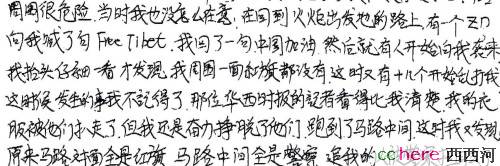 周围很危险。当时我也没怎么在意,在回到火炬出发地的路上,有一个ZD
向我喊了句Free Tibet,我回了一句中国加油,然后就有人开始向我袭来
我抬头仔细一看才发现,我周围一面红旗都没有,这时又有十几个开始包打我
这时候发生的事我不记得了,那位华西时报的记者看得比我清楚,我的衣
服被他们扑走了,但我还是奋力挣脱了他们,跑到了马路中间,这时我又发现
原来马路对面全是红旗,马路中间全是警察,追我的
cchere 西西河